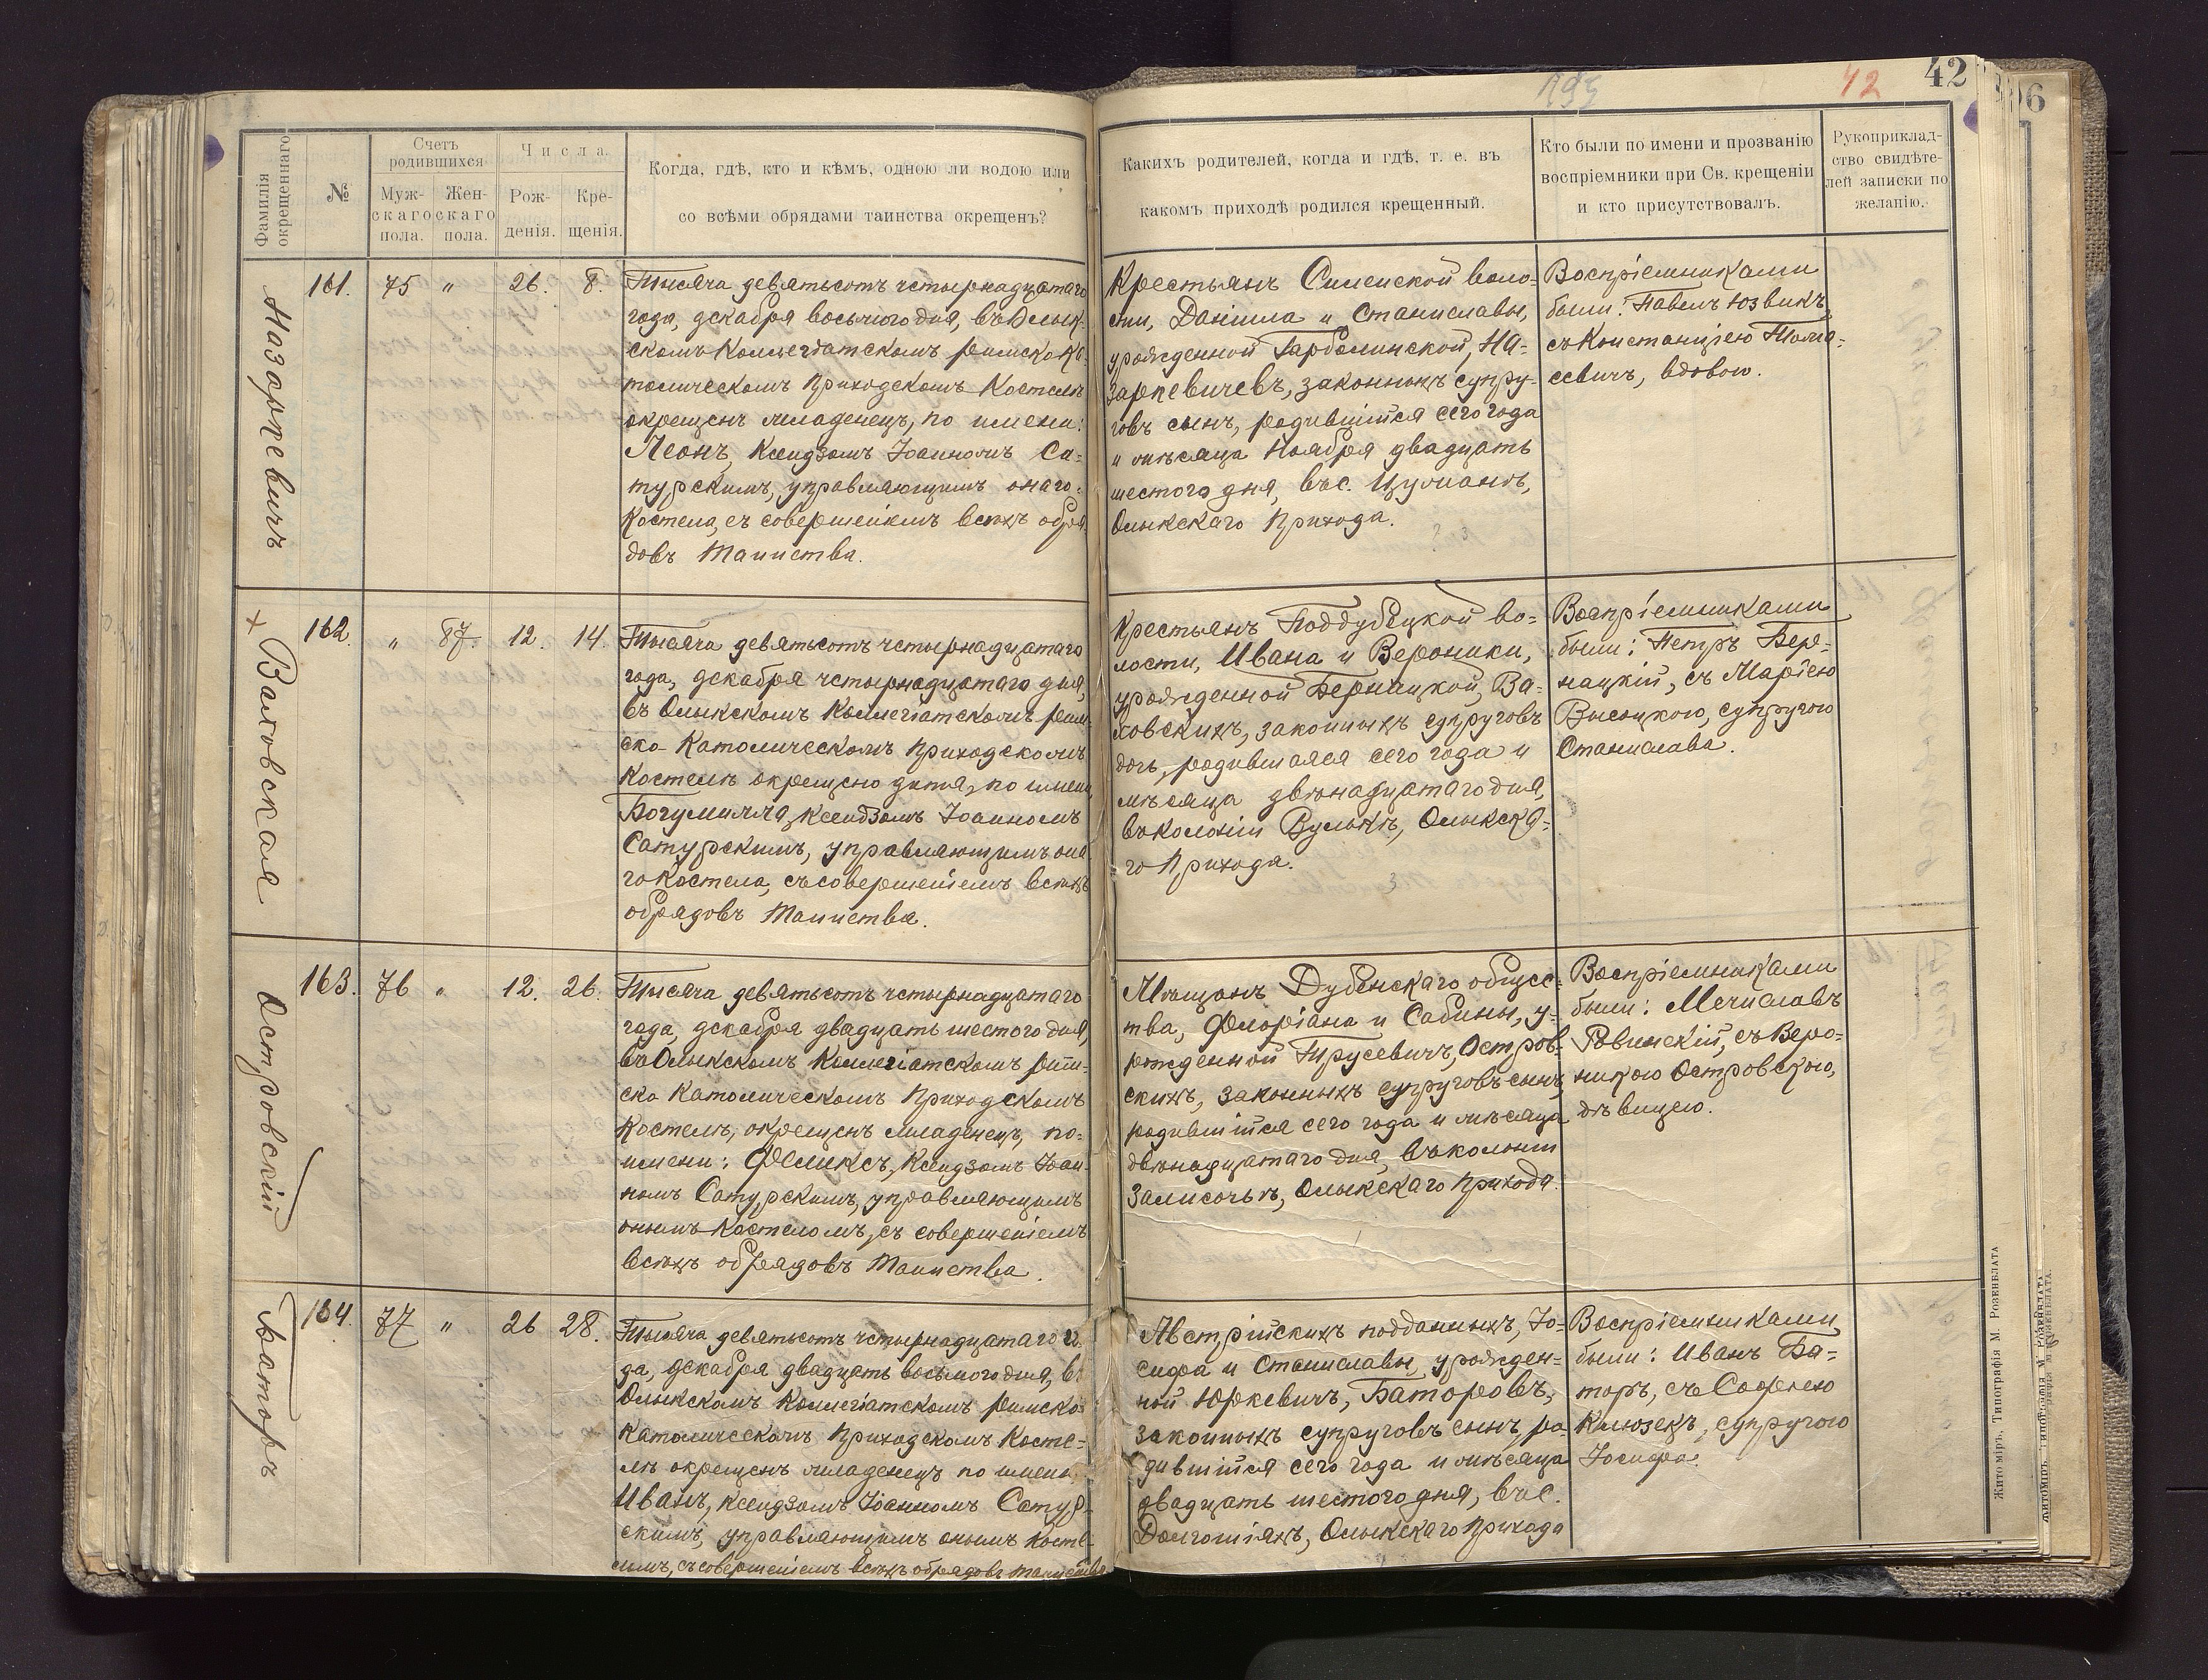 195
42
42
96
Фамилія окрещеннаго
№
Счетъ родившихся
Муж-
скаго
пола.
Жен-
скаго
пола.
Числа.
Рож-
денія.
Кре-
щенія.
Когда, гдѣ, кто и кѣмъ, одною ли водою или
со всѣми обрядами таинства окрещенъ?
Какихъ родителей, когда и гдѣ, т. е. въ
какомъ приходѣ родился крещенный.
Кто были по имени и прозванію
воспріемники при Св. крещеніи
и кто присутствовалъ.
Рукоприклад-
ство свидѣте-
лей записки по
желанію.
Назаркевичъ
161. 75 " 26. 8.
Тысяча девятьсотъ четырнадцатаго
года, декабря восьмого дня, въ Олык-
скомъ Коллегіатскомъ римско ка-
толическомъ Приходскомъ Костелѣ
окрещенъ младенецъ, по имени:
Леонъ, Ксендзомъ Іоанномъ Са-
турскимъ, управляющимъ онаго
Костела, съ совершеніемъ всѣхъ обря
довъ Таинства.
Крестьянъ Силенской воло-
сти, Даніила и Станиславы,
урожденной Гарболинской, На-
заркевичевъ, законныхъ супру-
говъ сынъ, родившійся сего года
и мѣсяца Ноября двадцать
шестого дня, въ с. Цумань,
Олыкскаго Прихода.
Воспріемниками
были: Павелъ Юзвикъ
съ Констанціею Тома-
севичъ, вдовою.
+ Валовская
162. " 87. 12. 14.
Тысяча девятьсотъ четырнадцатаго
года, декабря четырнадцатаго дня,
въ Олыкскомъ Коллегіатскомъ рим
ско-Католическомъ Приходскомъ
Костелѣ окрещено дитя, по имени
Богумилла, Ксендзомъ Іоанномъ
Сатурскимъ, управляющимъ она
го Костела, съ совершеніемъ всѣхъ
обрядовъ Таинства.
Крестьянъ Поддубецкой во-
лости, Ивана и Вероники,
урожденной Бернацкой, Ва-
ловскихъ, законныхъ супруговъ
дочь, родившаяся сего года и
мѣсяца двѣнадцатаго дня,
въ колоніи Вулькѣ, Олыкска-
го Прихода.
Воспріемниками
были: Петръ Бер-
нацкій, съ Маріею
Высоцкою, супругою
Станислава.
Островскій
163. 76 " 12. 26.
Тысяча девятьсотъ четырнадцатаго
года, декабря двадцать шестого дня,
въ Олыкскомъ Коллегіатскомъ рим-
ско Католическомъ Приходскомъ
Костелѣ, окрещенъ младенецъ, по-
имени: Феликсъ, Ксендзомъ Іоан-
номъ Сатурскимъ, управляющимъ
онымъ Костеломъ, съ совершеніемъ
всѣхъ обрядовъ Таинства.
Мѣщанъ Дубенскаго общес-
тва, Флоріана и Сабины, у-
рожденной Трусевичъ, Остров-
скихъ, законныхъ супруговъ сынъ,
родившійся сего года и мѣсяца
двѣнадцатаго дня, въ колоніи
Залисочьѣ, Олыкскаго Прихода.
Воспріемниками
были: Мечиславъ
Ровинскій, съ Веро-
никою Островскою,
дѣвицею.
Баторъ
164. 77 " 26 28.
Тысяча девятьсотъ четырнадцатаго го
да, декабря двадцать восьмого дня, въ
Олыкскомъ Коллегіатскомъ римско
Католическомъ Приходскомъ Косте-
лѣ окрещенъ младенецъ по имени
Иванъ, Ксендзомъ Іоанномъ Сатур-
скимъ, управляющимъ онымъ Косте-
ломъ, съ совершеніемъ всѣхъ обрядовъ Таинства
Австрійскихъ подданныхъ, Іо-
сифа и Станиславы, урожден-
ной Юркевичъ, Баторовъ,
законныхъ супруговъ сынъ, ро-
дившійся сего года и мѣсяца
двадцать шестого дня, въ с.
Долгошіяхъ, Олыкскаго Прихода
Воспріемниками
были: Иванъ Ба-
торъ, съ Софіею
Клюзекъ, супругою
Іосифа.
Житоміръ, Типографія М. Розенблата